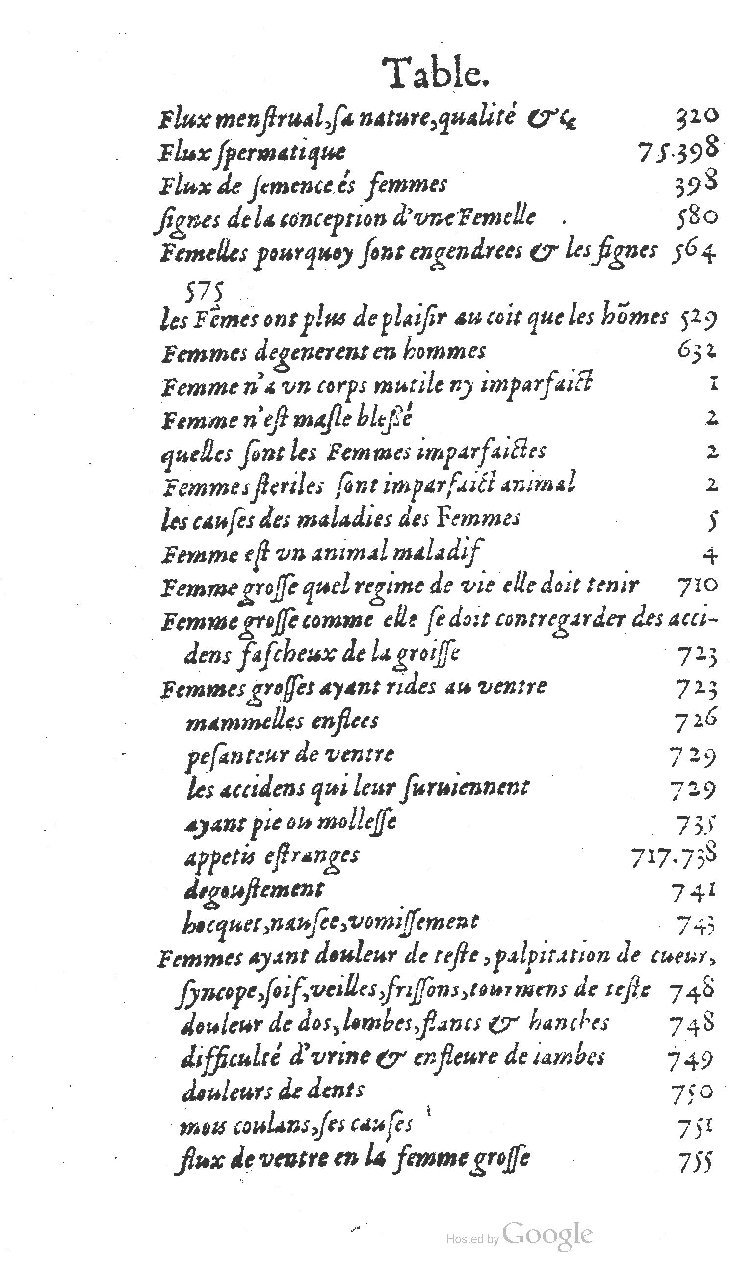 Table.
Flux menſtrual, ſa nature, qualité &c 320
Flux ſpermatique 75.398
Flux de ſemence és femmes 398
ſignes de la conception d'vne Femelle . 580
Femelles pourquoy ſont engendrees & les ſignes 564
575
les Fẽmes ont plus de plaiſir au coit que les hõmes 529
Femmes degenerent en hommes 632
Femme n'a vn corps mutile ny imparfaict 1
Femme n'eſt maſle bleſſé 2
quelles ſont les Femmes imparfaictes 2
Femmes ſteriles ſont imparfaict animal 2
les cauſes des maladies des Femmes 5
Femme eſt vn animal maladif 4
Femme groſſe quel regime de vie elle doit tenir 710
Femme groſſe comme elle ſe doit contregarder des acci-
dens faſcheux de la groiſſe 723
Femmes groſſes ayant rides au ventre 723
mammelles enflees 726
peſanteur de ventre 729
les accidens qui leur ſuruiennent 729
ayant pie ou molleſſe 735
appetis eſtranges 717.738
degouſtement 741
hocquet, nauſee, vomiſſement 743
Femmes ayant douleur de teſte, palpitation de cueur,
ſyncope, ſoif, veilles, friſſons, tourmens de teſte 748
douleur de dos, lombes, flancs & hanches 748
difficulté d'vrine & enfleure de iambes 749
douleurs de dents 750
mois coulans, ſes cauſes 751
flux de ventre en la femme groſſe 755
Hosted by Google